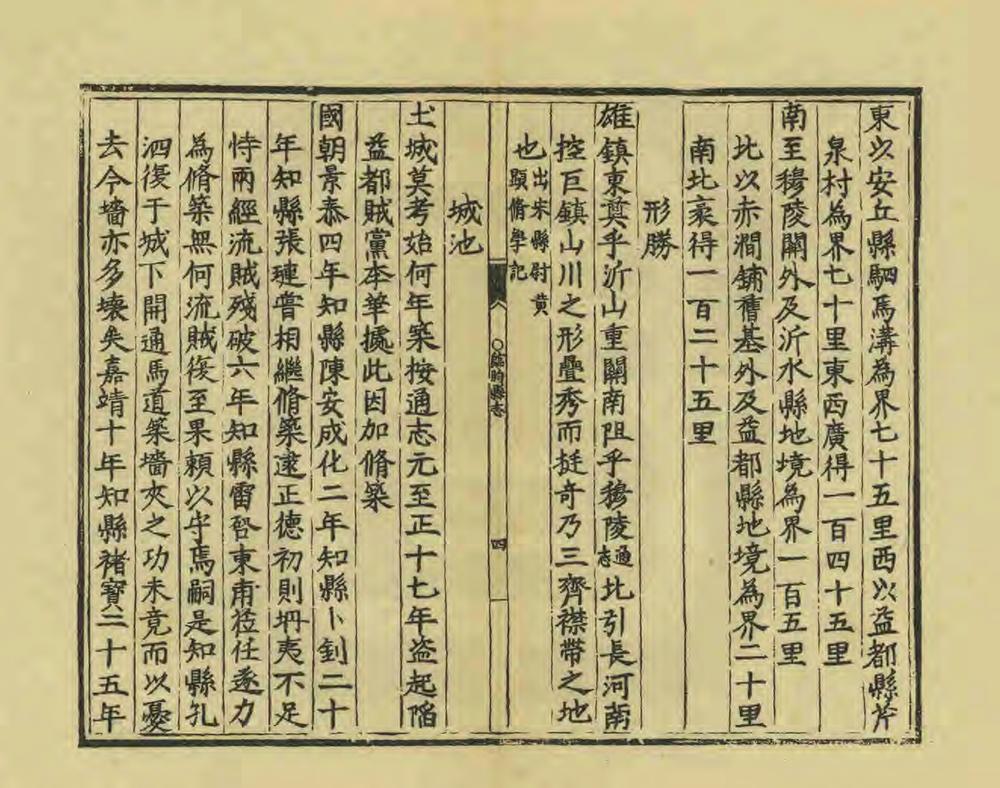 東以安丘縣駟馬溝為界七十五里西以益都縣斧
泉村為界七十里東西廣得一百四十五里
南至穆陵關外及沂水縣地境為界一百五里
北以赤澗鋪舊基外及益都縣地境為界二十里
南北袤得一百二十五里
形勝
雄鎮東奠乎沂山重關南阻乎穆陵通志北引長河南
控巨鎮山川之形疊秀而挺奇乃三齊襟帶之地
也出宋縣尉黄顕脩學記
○臨朐縣志
四
城池
土城莫考始何年築按通志元至正十七年盗起陷
益都賊黨本華據此因加脩築
國朝景泰四年知縣陳安成化二年知縣卜釗二十
年知縣張璉嘗相繼脩築逮正德初則坍夷不足
恃兩經流賊殘破六年知縣雷啓東甫莅任遂力
為脩築無何流賊復至果賴以守焉嗣是知縣孔
泗復于城下開通馬道築墻夾之功未竟而以憂
去今墻亦多壊矣嘉靖十年知縣褚寶三十五年